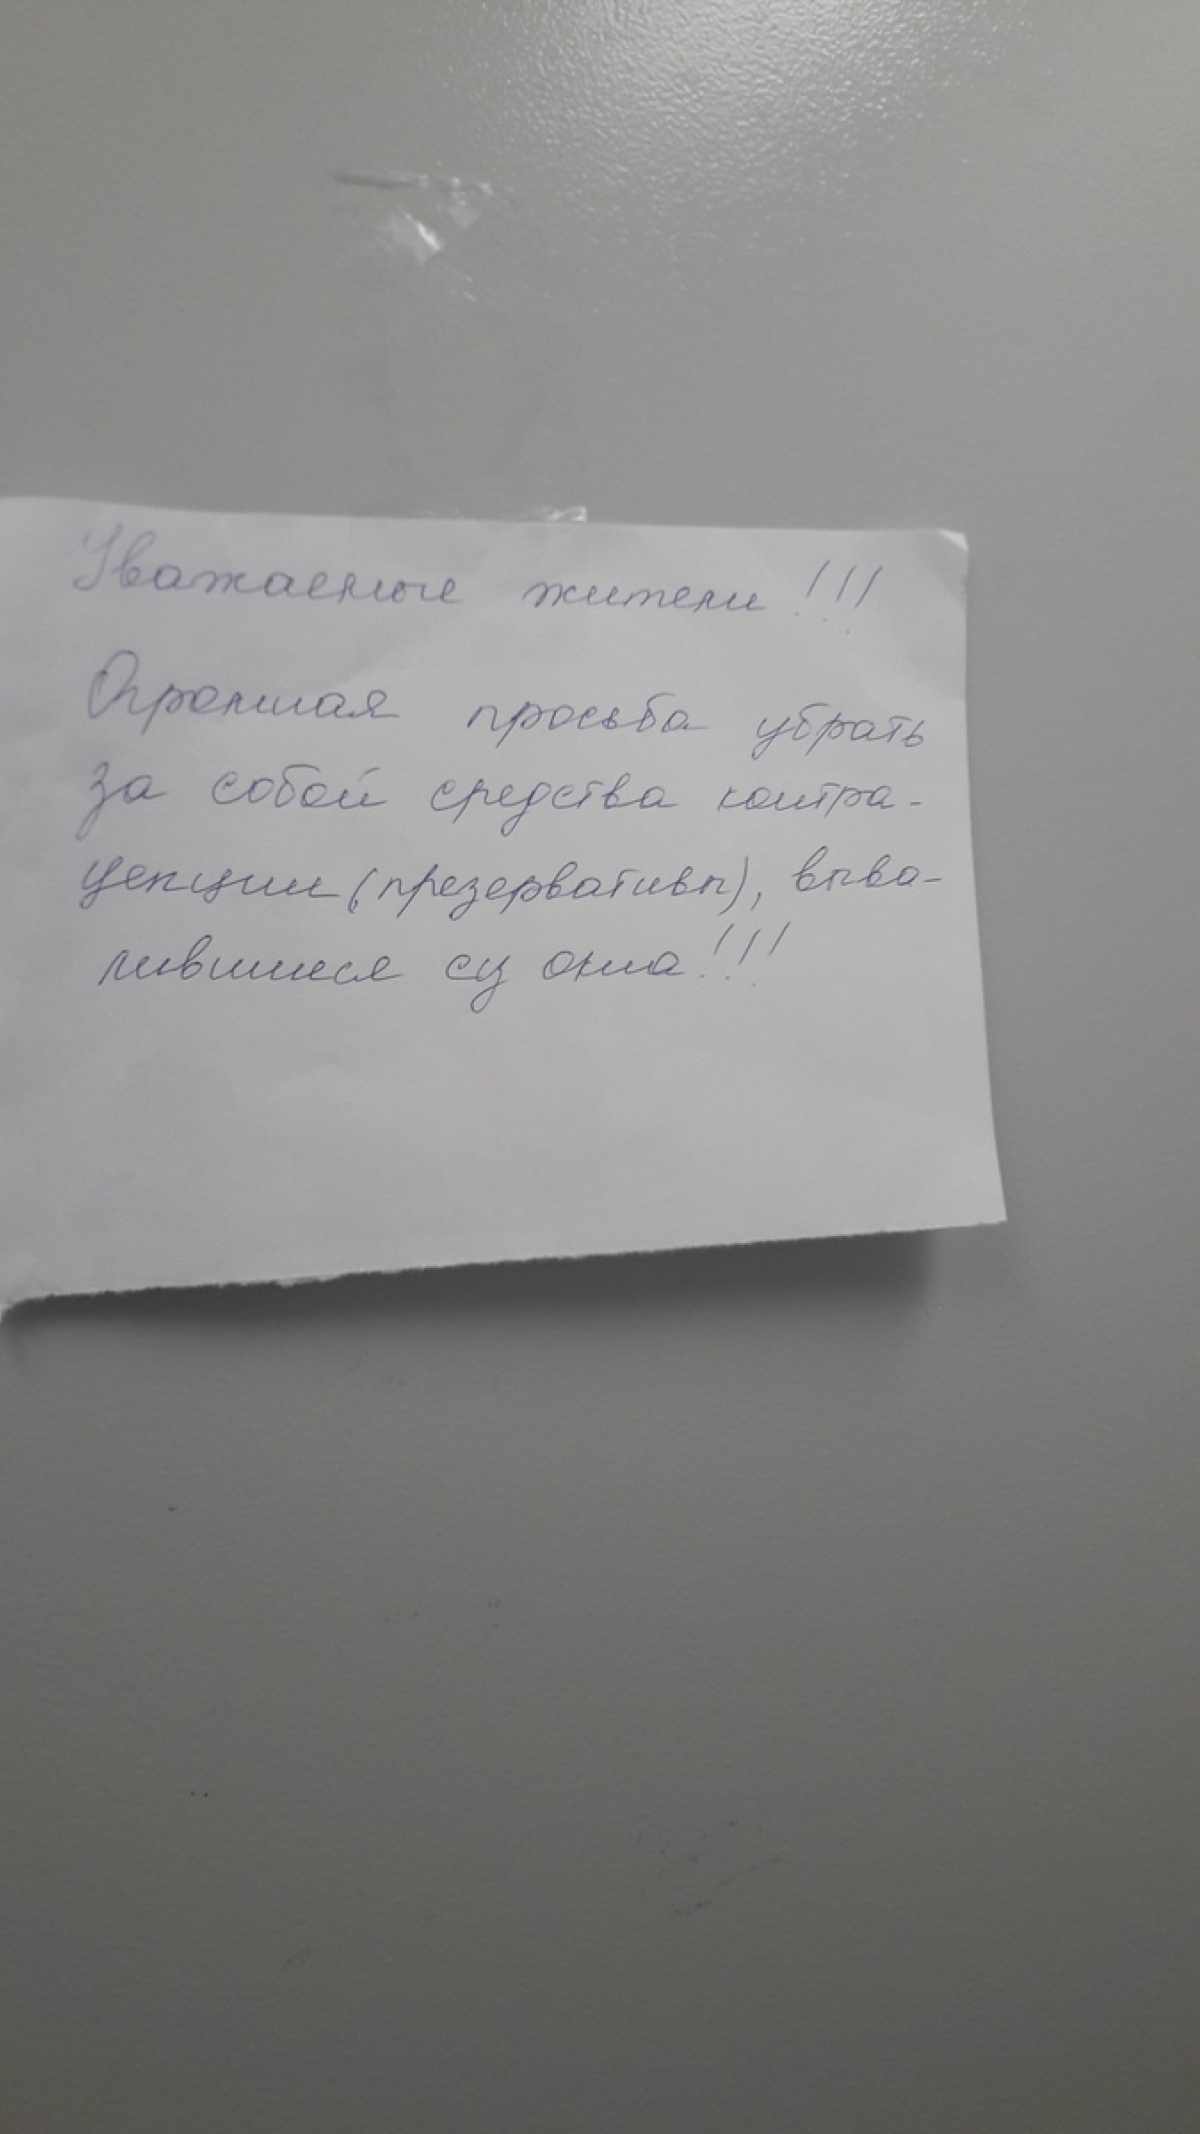 Уважаемые жители!!!
Огромная просьба убрать
за собой средства контра-
цепции (презервативы), выва-
лившиеся из окна!!!